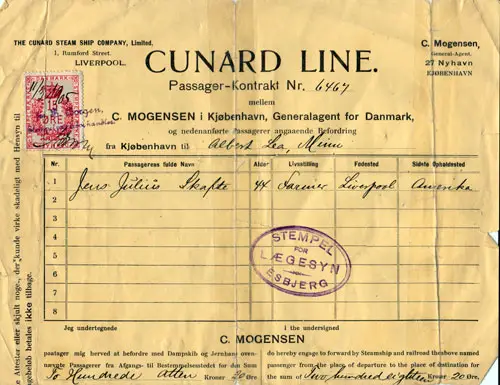 THE CUNARD STEAM SHIP COMPANY, Limited,
1, Rumford Street.
LIVERPOOL.
C. Mogensen,
General-Agent.
27 Nyhavn
KJØBENHAVN
CUNARD LINE.
Passager-Kontrakt Nr. 6467
mellem
C. MOGENSEN i Kjøbenhavn, Generalagent for Danmark,
og nedenanførte Passagerer angaaende Befordring
fra Kjøbenhavn til Albert Lea, Minn
15
ØRE
Nr. Passagerens fulde Navn Alder Livsstilling Fødested Sidste Opholdssted
1 Jens Julius Skafte 44 Farmer Liverpool Amerika
2
3
4
5
6
7
8
STEMPEL
FOR
LÆGESYN
ESBJERG
Jeg undertegnede i the undersigned
C. MOGENSEN
paatager mig herved at befordre med Dampskib og Jernbane ovennævnte
do hereby engage to forward by Steamship and railroad the above named
Passagerer fra Afgangs- til Bestemmelsesstedet for den Sum
passenger from the place of departure to the place of destination for
To Hundrede Atten Kroner 20 Øre
the sum of Two hundred eighteen Kroner 20 Øre
noge., der kunde virke skadelig med Hensyn til
Attester eller skjult
betales ikke tilbage.